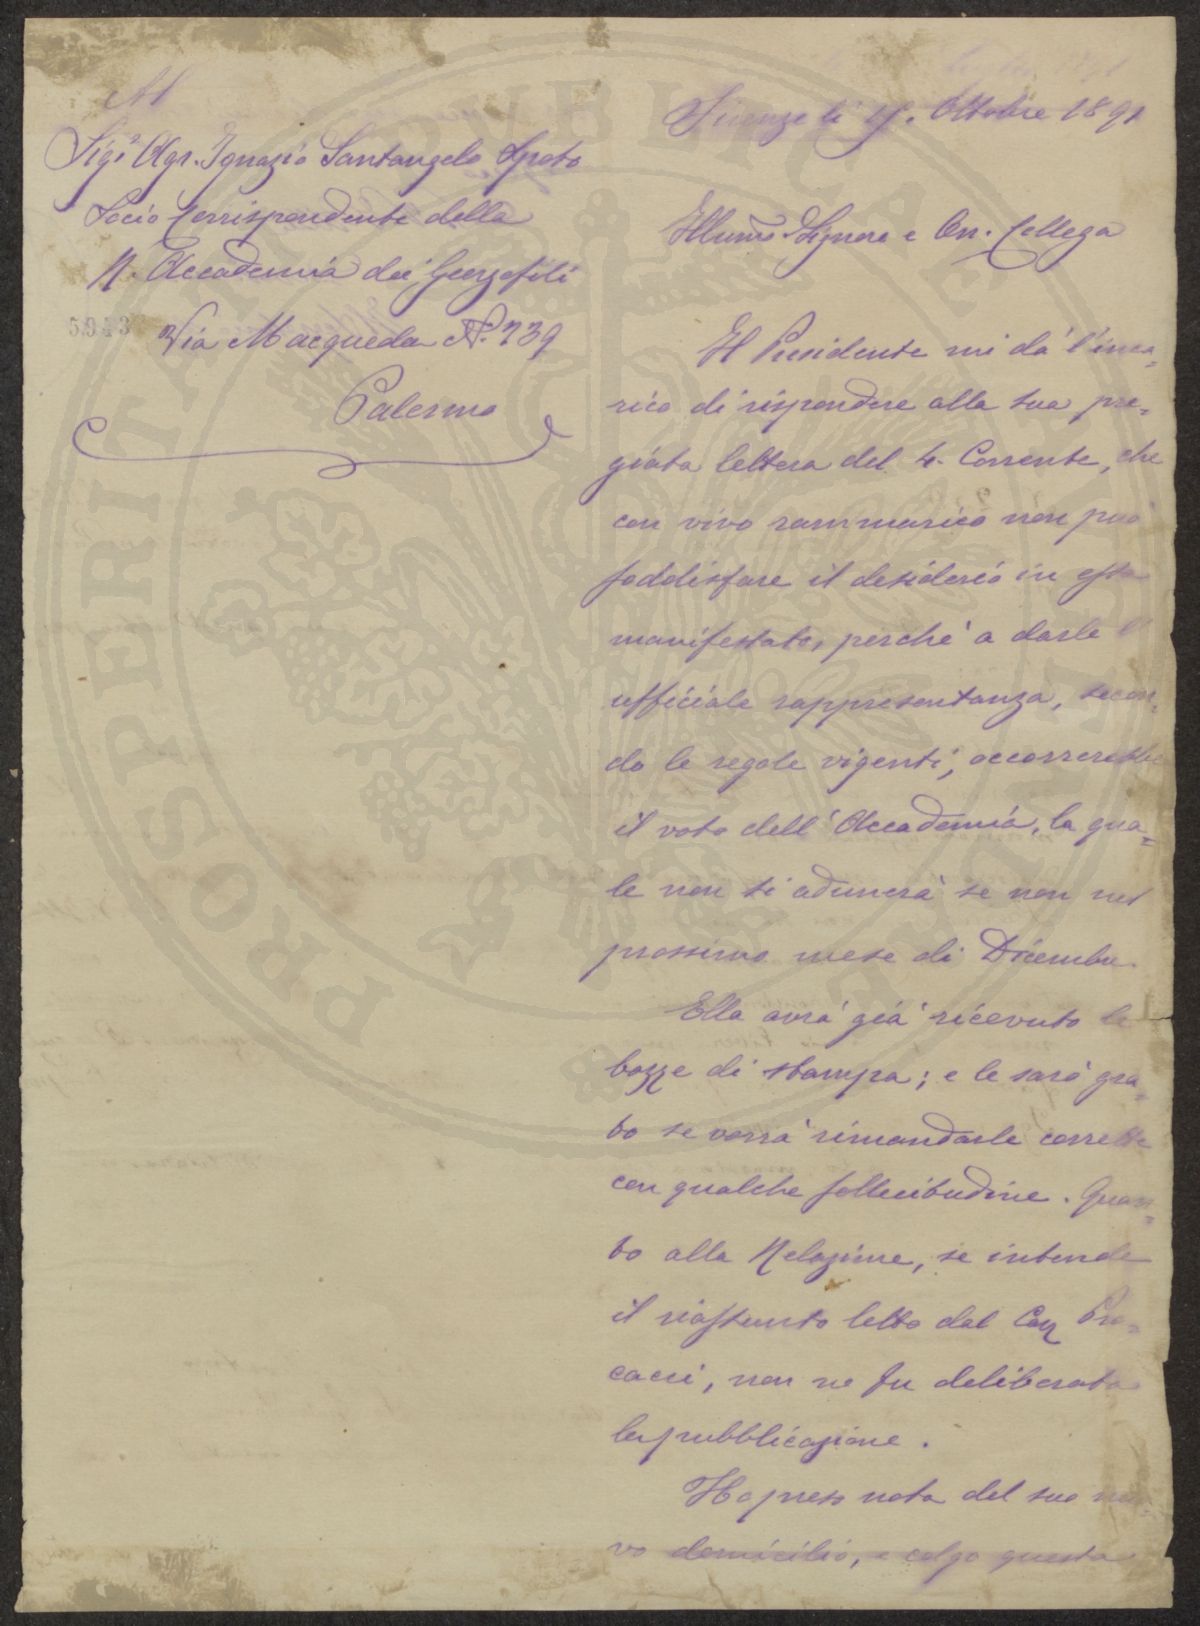 Al
Sig.r Agr. Ignazio Santangelo Spoto
Socio Corrispondente della
R. Accademia dei Georgofili
5943
Via Macqueda N. 739
Palermo
Firenze li Ottobre 1891
Illumo Signore e On. Collega
Il Presidente mi dà l'inca=
rico di rispondere alla sua pre=
giata lettera del 4. Corrente, che
con vivo rammarico non può
soddisfare il desiderio in essa
manifestato, perchè a darle l'
ufficiale rappresentanza, secon=
do le regole vigenti, occorrerebbe
il voto dell'Accademia, la qua=
le non si adunerà se non nel
prossimo mese di Dicembre.
Ella avrà già ricevuto le
bozze di stampa; e le sarò gra=
to se vorrà rimandarle corrette
con qualche sollecitudine. Quan=
to alla Relazione, se intende
il riassunto letto dal Cav Pro=
cacci, non ne fu deliberata
la pubblicazione.
Ho preso nota del suo nuo=
vo domicilio, e colgo questa
PROSPERITATI PVBLICAE AVGENDAE